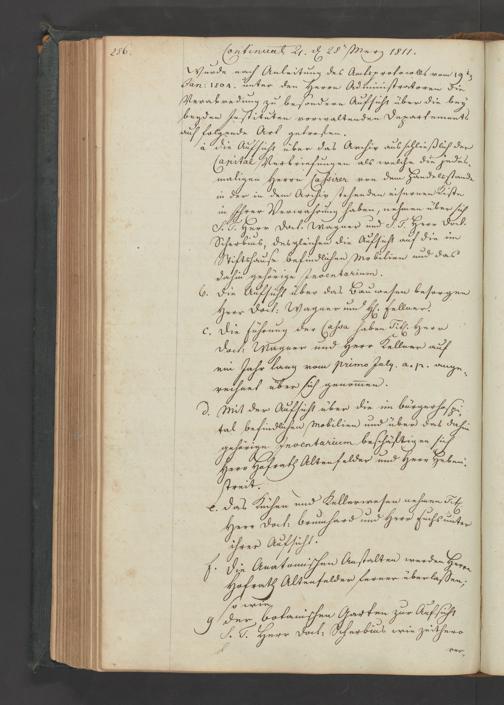 286.
Continuat. 21. d. 28ᵗ Merz 1811.
Wurde nach Anleitung des Amtsprotocolls vom 19ten
Jan: 1804. unter den Herrn Administratoren die
Verabredung zu besonderer Aufsicht über die bey
beyden Instituten vorwaltenden Departements
auf folgende Art getroffen.
a. die Aufsicht über das Archiv ausschließlich der
Capital Verbriefungen als welche die jedes-
maligen Herrn Cassirer von dem Handelsstande
in der in dem Archiv stehenden eisernen Kiste
in Ihrer Verwahrung haben, nehmen über sich
S. T. Herr Doct. Wagner und S. T. Herr Doct.
Scherbius, desgleichen die Aufsicht auf die im
Stiftshause befindlichen Mobilien und das
dahin gehörige Inventarium.
b. Die Aufsicht über das Bauwesen besorgen
Herr Doct: Wagner und H. Kellner.
c. Die Führung der Cassa haben Tit. Herr
Doct: Wagner und Herr Kellner auf
ein Jahr lang vom primo July a. p. ange-
rechnet über sich genommen.
d. Mit der Aufsicht über die im bürgerhospi-
tal befindlichen Mobilien und über das dahin
gehörige Inventarium beschäftigen sich
Herr Hofrath Altenfelder und Herr Heben-
streit.
e. das Küchen und Kellerwesen nehmen Tit.
Herr Doct: Brunhard und Herr Fuchs unter
ihrer Aufsicht.
f. die Anatomischen Anstalten werden Herrn
Hofrath Altenfelder ferner überlassen;
so wie
g der botanischen Garten zur Aufsicht
S. T. Herr Doct: Scherbius wie zeithero
ver-